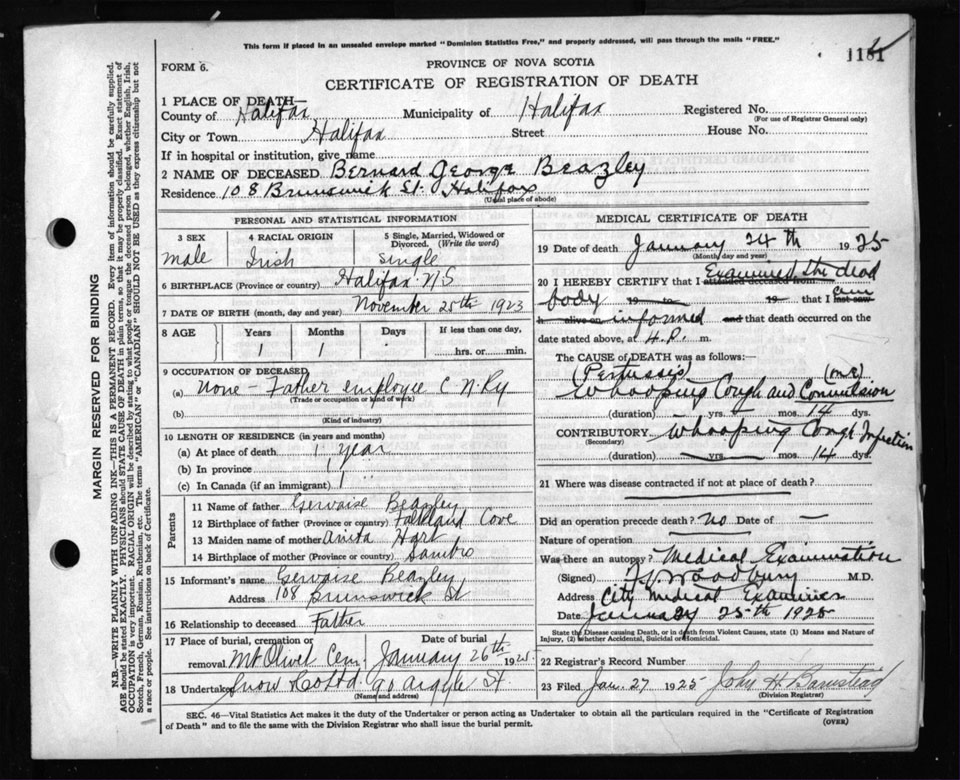 This form if placed in an unsealed envelope marked "Dominion Statistics Free," and properly addressed, will pass through the mails "FREE."
1181
FORM 6.
PROVINCE OF NOVA SCOTIA
CERTIFICATE OF REGISTRATION OF DEATH
1 PLACE OF DEATH—
County of Halifax Municipality of Halifax Registered No.
(For use of Registrar General only)
City or Town Halifax Street House No.
If in hospital or institution, give name
2 NAME OF DECEASED Bernard George Beazley
Residence 108 Brunswick St. Halifax
(Usual place of abode)
PERSONAL AND STATISTICAL INFORMATION
3 SEX 4 RACIAL ORIGIN 5 Single, Married, Widowed or Divorced. (Write the word)
male Irish single
6 BIRTHPLACE (Province or country) Halifax NS
7 DATE OF BIRTH (month, day and year) November 25th 1923
8 AGE Years Months Days If less than one day,
1 1 ......hrs. or ......min.
9 OCCUPATION OF DECEASED
(a) None - Father employee C N Ry
(Trade or occupation or kind of work)
(b)
(Kind of industry)
10 LENGTH OF RESIDENCE (in years and months)
(a) At place of death 1 year
(b) In province 1 "
(c) In Canada (if an immigrant) 1 "
Parents
11 Name of father Gervaise Beazley
12 Birthplace of father (Province or country) Falkland Cove
13 Maiden name of mother Anita Hart
14 Birthplace of mother (Province or country) Sambro
15 Informant's name Gervaise Beazley
Address 108 Brunswick St
16 Relationship to deceased Father
17 Place of burial, cremation or removal Mt Olivet Cem. Date of burial January 26th 1925
18 Undertaker Snow & Co Ltd 90 Argyle St
(Name and address)
MEDICAL CERTIFICATE OF DEATH
19 Date of death January 24th 1925
(Month, day and year)
20 I HEREBY CERTIFY that I attended deceased from Examined the dead
body 19 to 19 that I last saw am
h alive on informed and that death occurred on
date stated above, at 4.P. m.
The CAUSE of DEATH was as follows:—
(Pertussis)
Whooping Cough and Convulsion
(duration) yrs. mos. 14 dys.
CONTRIBUTORY Whooping Cough
(Secondary)
(duration) yrs. mos. 14 dys.
21 Where was disease contracted if not at place of death?
Did an operation precede death? No Date of —
Nature of operation
Was there an autopsy? Medical Examination
(Signed) Woodbury M.D.
Address City Medical Examiner
Date January 25th 1925
State the Disease causing Death, or in death from Violent Causes, state (1) Means and Nature of
Injury, (2) whether Accidental, Suicidal or Homicidal.
22 Registrar's Record Number
23 Filed Jan. 27 1925 John H Barnstead
(Division Registrar)
SEC. 46—Vital Statistics Act makes it the duty of the Undertaker or person acting as Undertaker to obtain all the particulars required in the "Certificate of Registration
of Death" and to file the same with the Division Registrar who shall issue the burial permit.
(OVER)
MARGIN RESERVED FOR BINDING
N.B.—WRITE PLAINLY WITH UNFADING INK—THIS IS A PERMANENT RECORD. Every item of information should be carefully supplied.
AGE should be stated EXACTLY. PHYSICIANS should STATE CAUSE OF DEATH in plain terms, so that it may be properly classified. Exact statement of
OCCUPATION is very important. RACIAL ORIGIN will be described by stating to what people or tongue the deceased person belonged, whether English, Irish,
Scotch, French, German, Russian, Ruthenian, etc. The terms "AMERICAN" or "CANADIAN" SHOULD NOT BE USED as they express citizenship but not
a race or people. See instructions on back of Certificate.